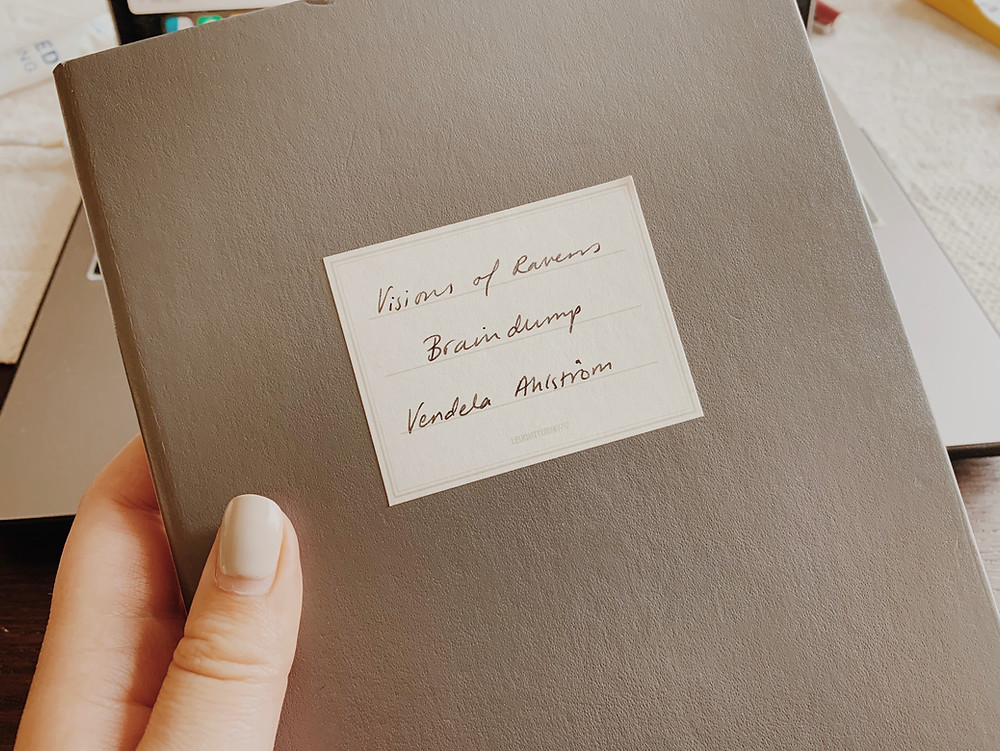 Visions of Ravens
Braindump
Vendela Ahlström
LEUCHTTURM1917
ED
NG